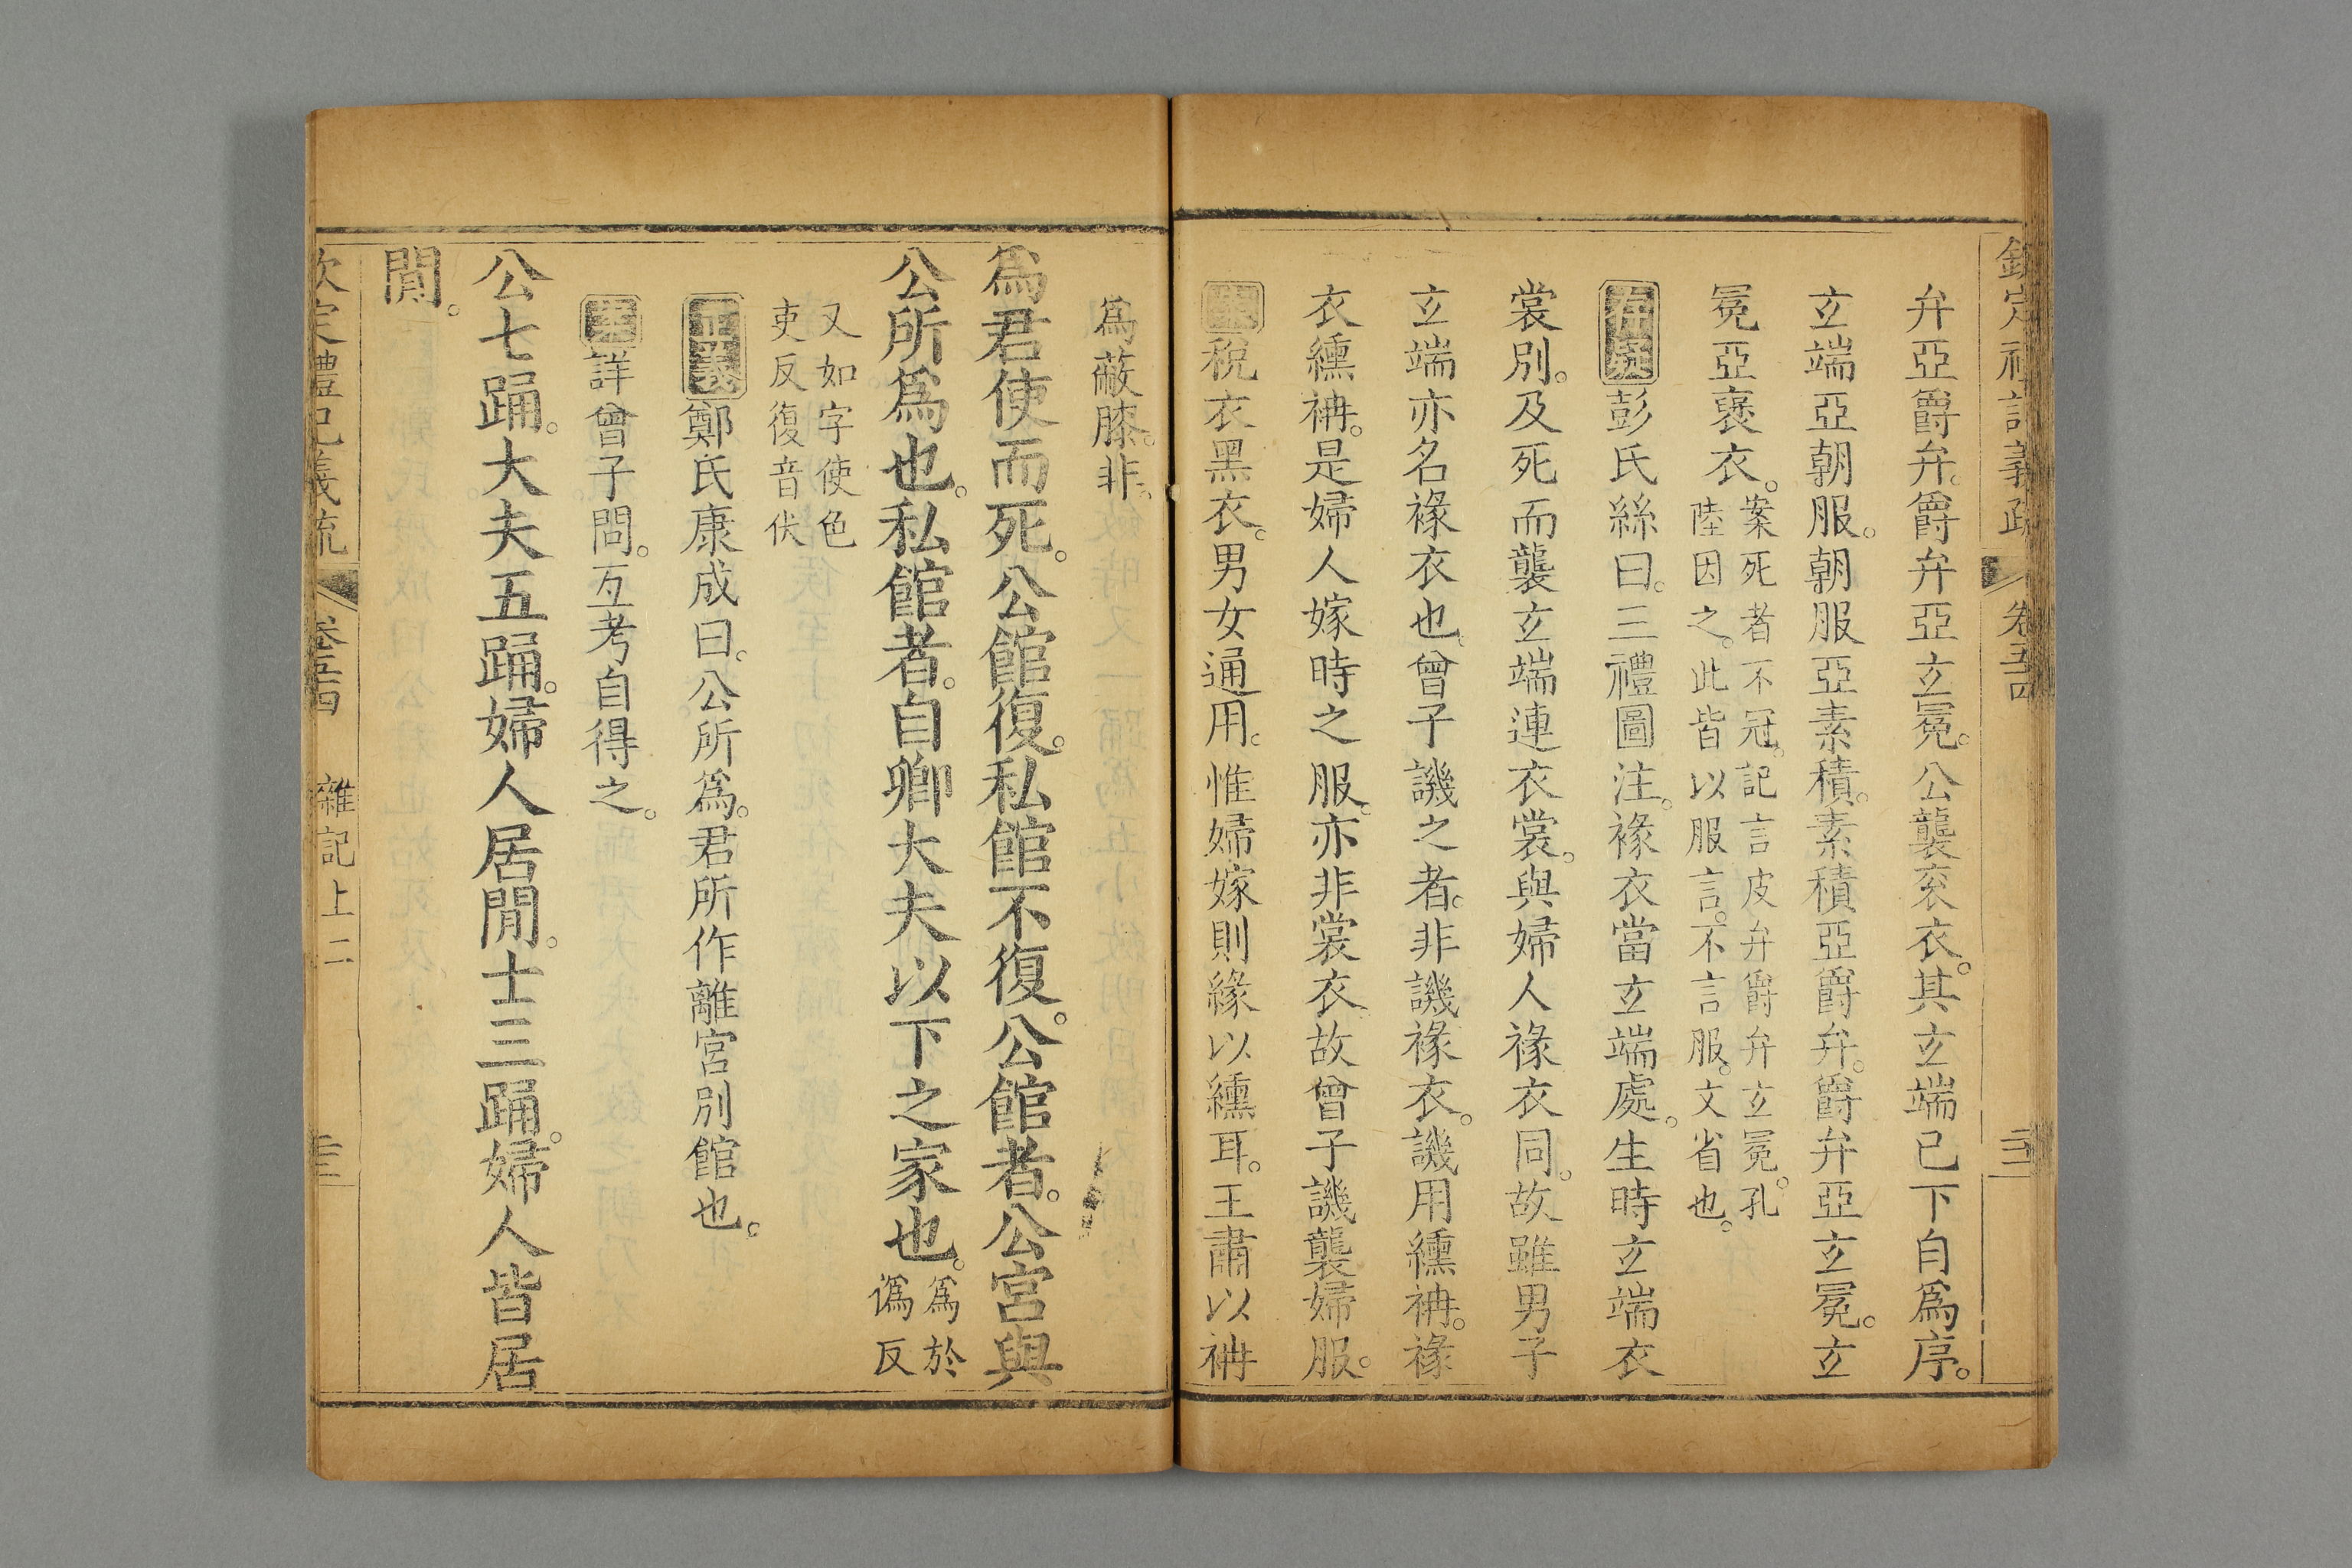 欽定禮記義疏 卷五十四 三三
弁亞爵弁。爵弁亞玄冕。公襲衮衣。其玄端已下自爲序。
玄端亞朝服。朝服亞素積。素積亞爵弁。爵弁亞玄冕。玄
冕亞襃衣。案死者不冠。記言皮弁爵弁玄冕。孔
陸因之。此皆以服言。不言服。文省也。
存疑彭氏絲曰。三禮圖注。褖衣當玄端處。生時玄端衣
裳別。及死而襲玄端連衣裳。與婦人褖衣同。故雖男子
玄端亦名褖衣也。曾子譏之者。非譏褖衣。譏用纁袡。褖
衣纁袡。是婦人嫁時之服。亦非裳衣。故曾子譏襲婦服。
案稅衣黑衣。男女通用。惟婦嫁則緣以纁耳。王肅以袡
爲蔽膝。非。
爲君使而死。公館復。私館不復。公館者。公宮與
公所爲也。私館者。自卿大夫以下之家也。爲於
僞反
又如字使色
吏反復音伏
正義鄭氏康成曰。公所爲。君所作離宮別館也。
案詳曾子問。互考自得之。
公七踊。大夫五踊。婦人居閒。士三踊。婦人皆居
閒。
欽定禮記義疏 卷五十四 雜記上二 三三